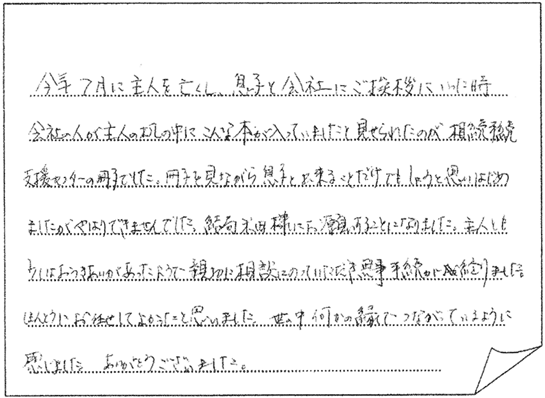 今年7月に主人を亡くし、息子と会社にご挨拶にいった時
会社の人が主人の机の中にこんな本が入っていましたと見せられたのが相続手続
支援センターの冊子でした。冊子を見ながら息子と出来ることだけでもしようと思いはじめ
ましたがやはりできませんでした。結局 米田様にお願いすることになりました。主人とも
お付きあいがあったようで親切に相談にのっていただき無事手続が終りました。
ほんとうにお任せしてよかったと思いました。世の中何かの縁でつながっているように
感じました ありがとうございました。